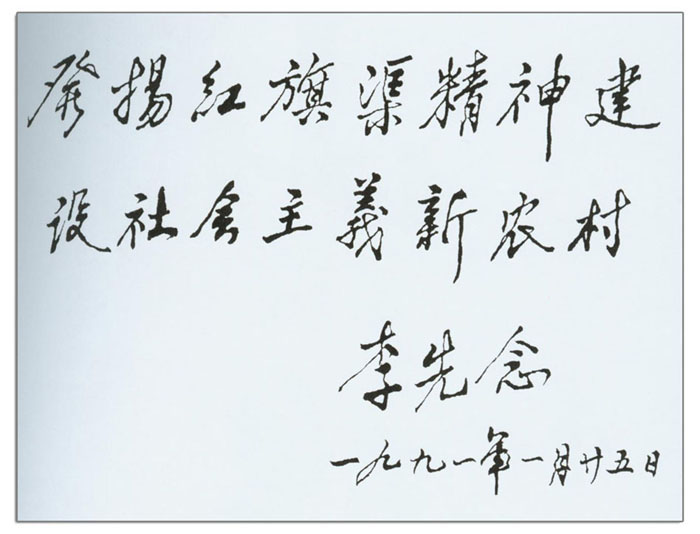 發揚紅旗渠精神建
设社会主義新农村
李先念
一九九一年一月廿五日